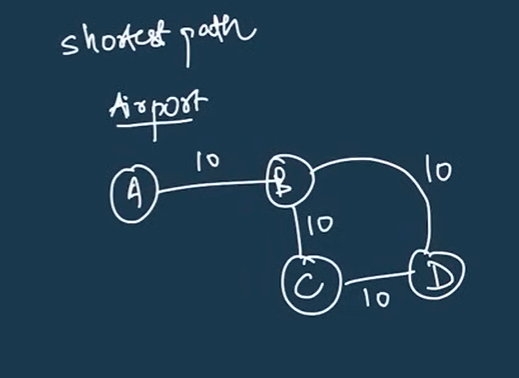 shortest path
Airport
10
A
B
10
10
C
D
10